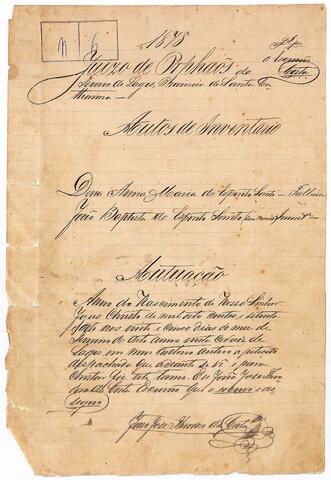 N 6
1878
Fl. 1
Juizo de Orphãos do
Termo de Lages, Provincia de Santa Ca
tharina
O Escrivão
Costa
Autos de Inventario
Dona Anna Maria do Espirito Santo - Fallecida
João Baptista do Espirito Santo,
Autuação
Anno do Nascimento de Nosso Senhor
Jezus Christo de mil oito centos e setenta
e oito aos vinte e cinco dias do mez de
do dito anno nesta Cidade de
Lages em meu Cartorio autuo a petição
despachada que adiante se vê; e para
Constar fiz este termo. Eu João José
da Costa Escrivão que o escrevi e as
signo
João José da Costa